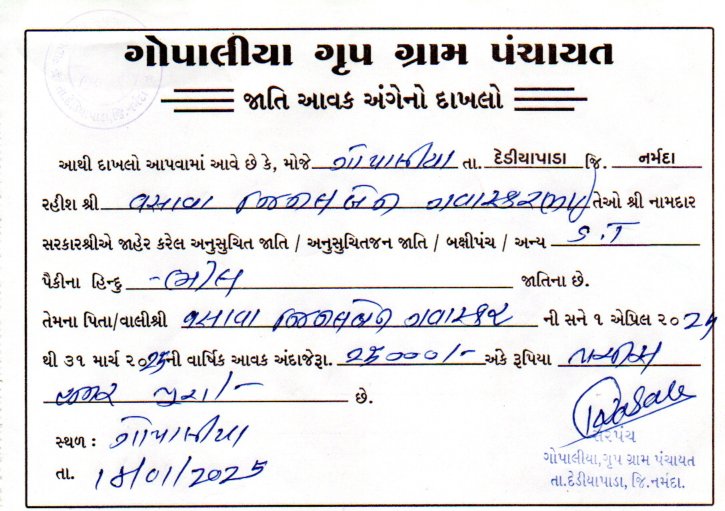 ગોપાલીયા ગૃપ ગ્રામ પંચાયત
જાતિ આવક અંગેનો દાખલો
આથી દાખલો આપવામાં આવે છે કે, મોજે ગોપાલીયા તા. દેડીયાપાડા જિ. નર્મદા
રહીશ શ્રી વસાવા જિનલબેન તેઓ શ્રી નામદાર
સરકારશ્રીએ જાહેર કરેલ અનુસુચિત જાતિ / અનુસુચિતજન જાતિ / બક્ષીપંચ / અન્ય S.T
પૈકીના હિન્દુ - ભીલ જાતિના છે.
તેમના પિતા/વાલીશ્રી વસાવા જિનલબેન ની સને ૧ એપ્રિલ ૨૦24
થી ૩૧ માર્ચ ૨૦25ની વાર્ષિક આવક અંદાજેરૂા. 25000/- અંકે રૂપિયા પચ્ચીસ
હજાર પુરા/- છે.
સ્થળ : ગોપાલીયા
સરપંચ
ગોપાલીયા, ગૃપ ગ્રામ પંચાયત
તા. 18/01/2025
તા.દેડીયાપાડા, જિ.નર્મદા.